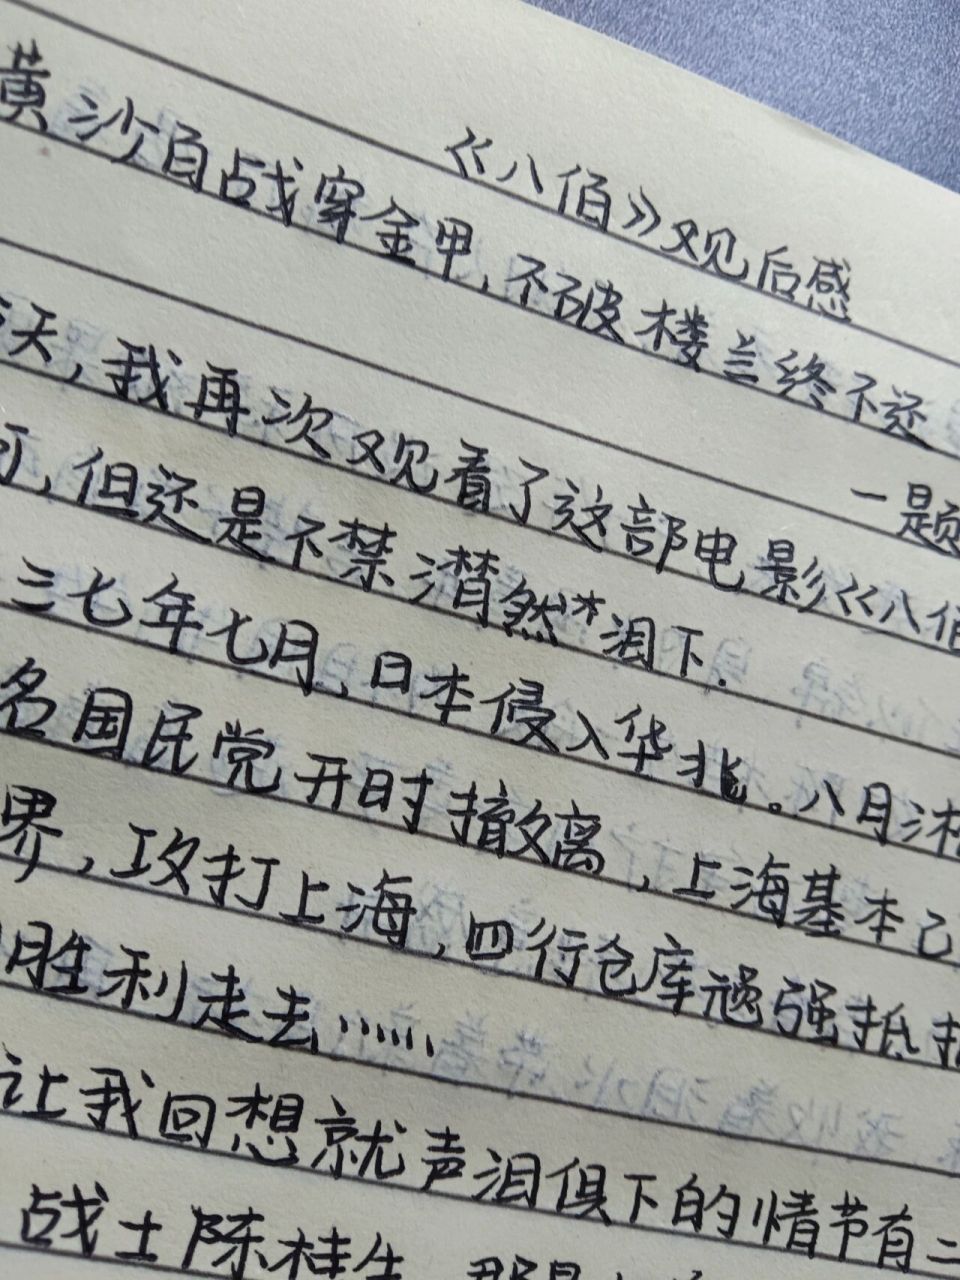 《八佰》观后感
黄沙百战穿金甲，不破楼兰终不还
一题
天，我再次观看了这部电影《八佰
，但还是不禁潸然*泪下.
三七年七月，日本侵入华北。八月淞
名国民党开时撤离，上海基本已
界，攻打上海，四行仓库顽强抵抗
胜利走去……
让我回想就声泪俱下的情节有二
战士陈桂生